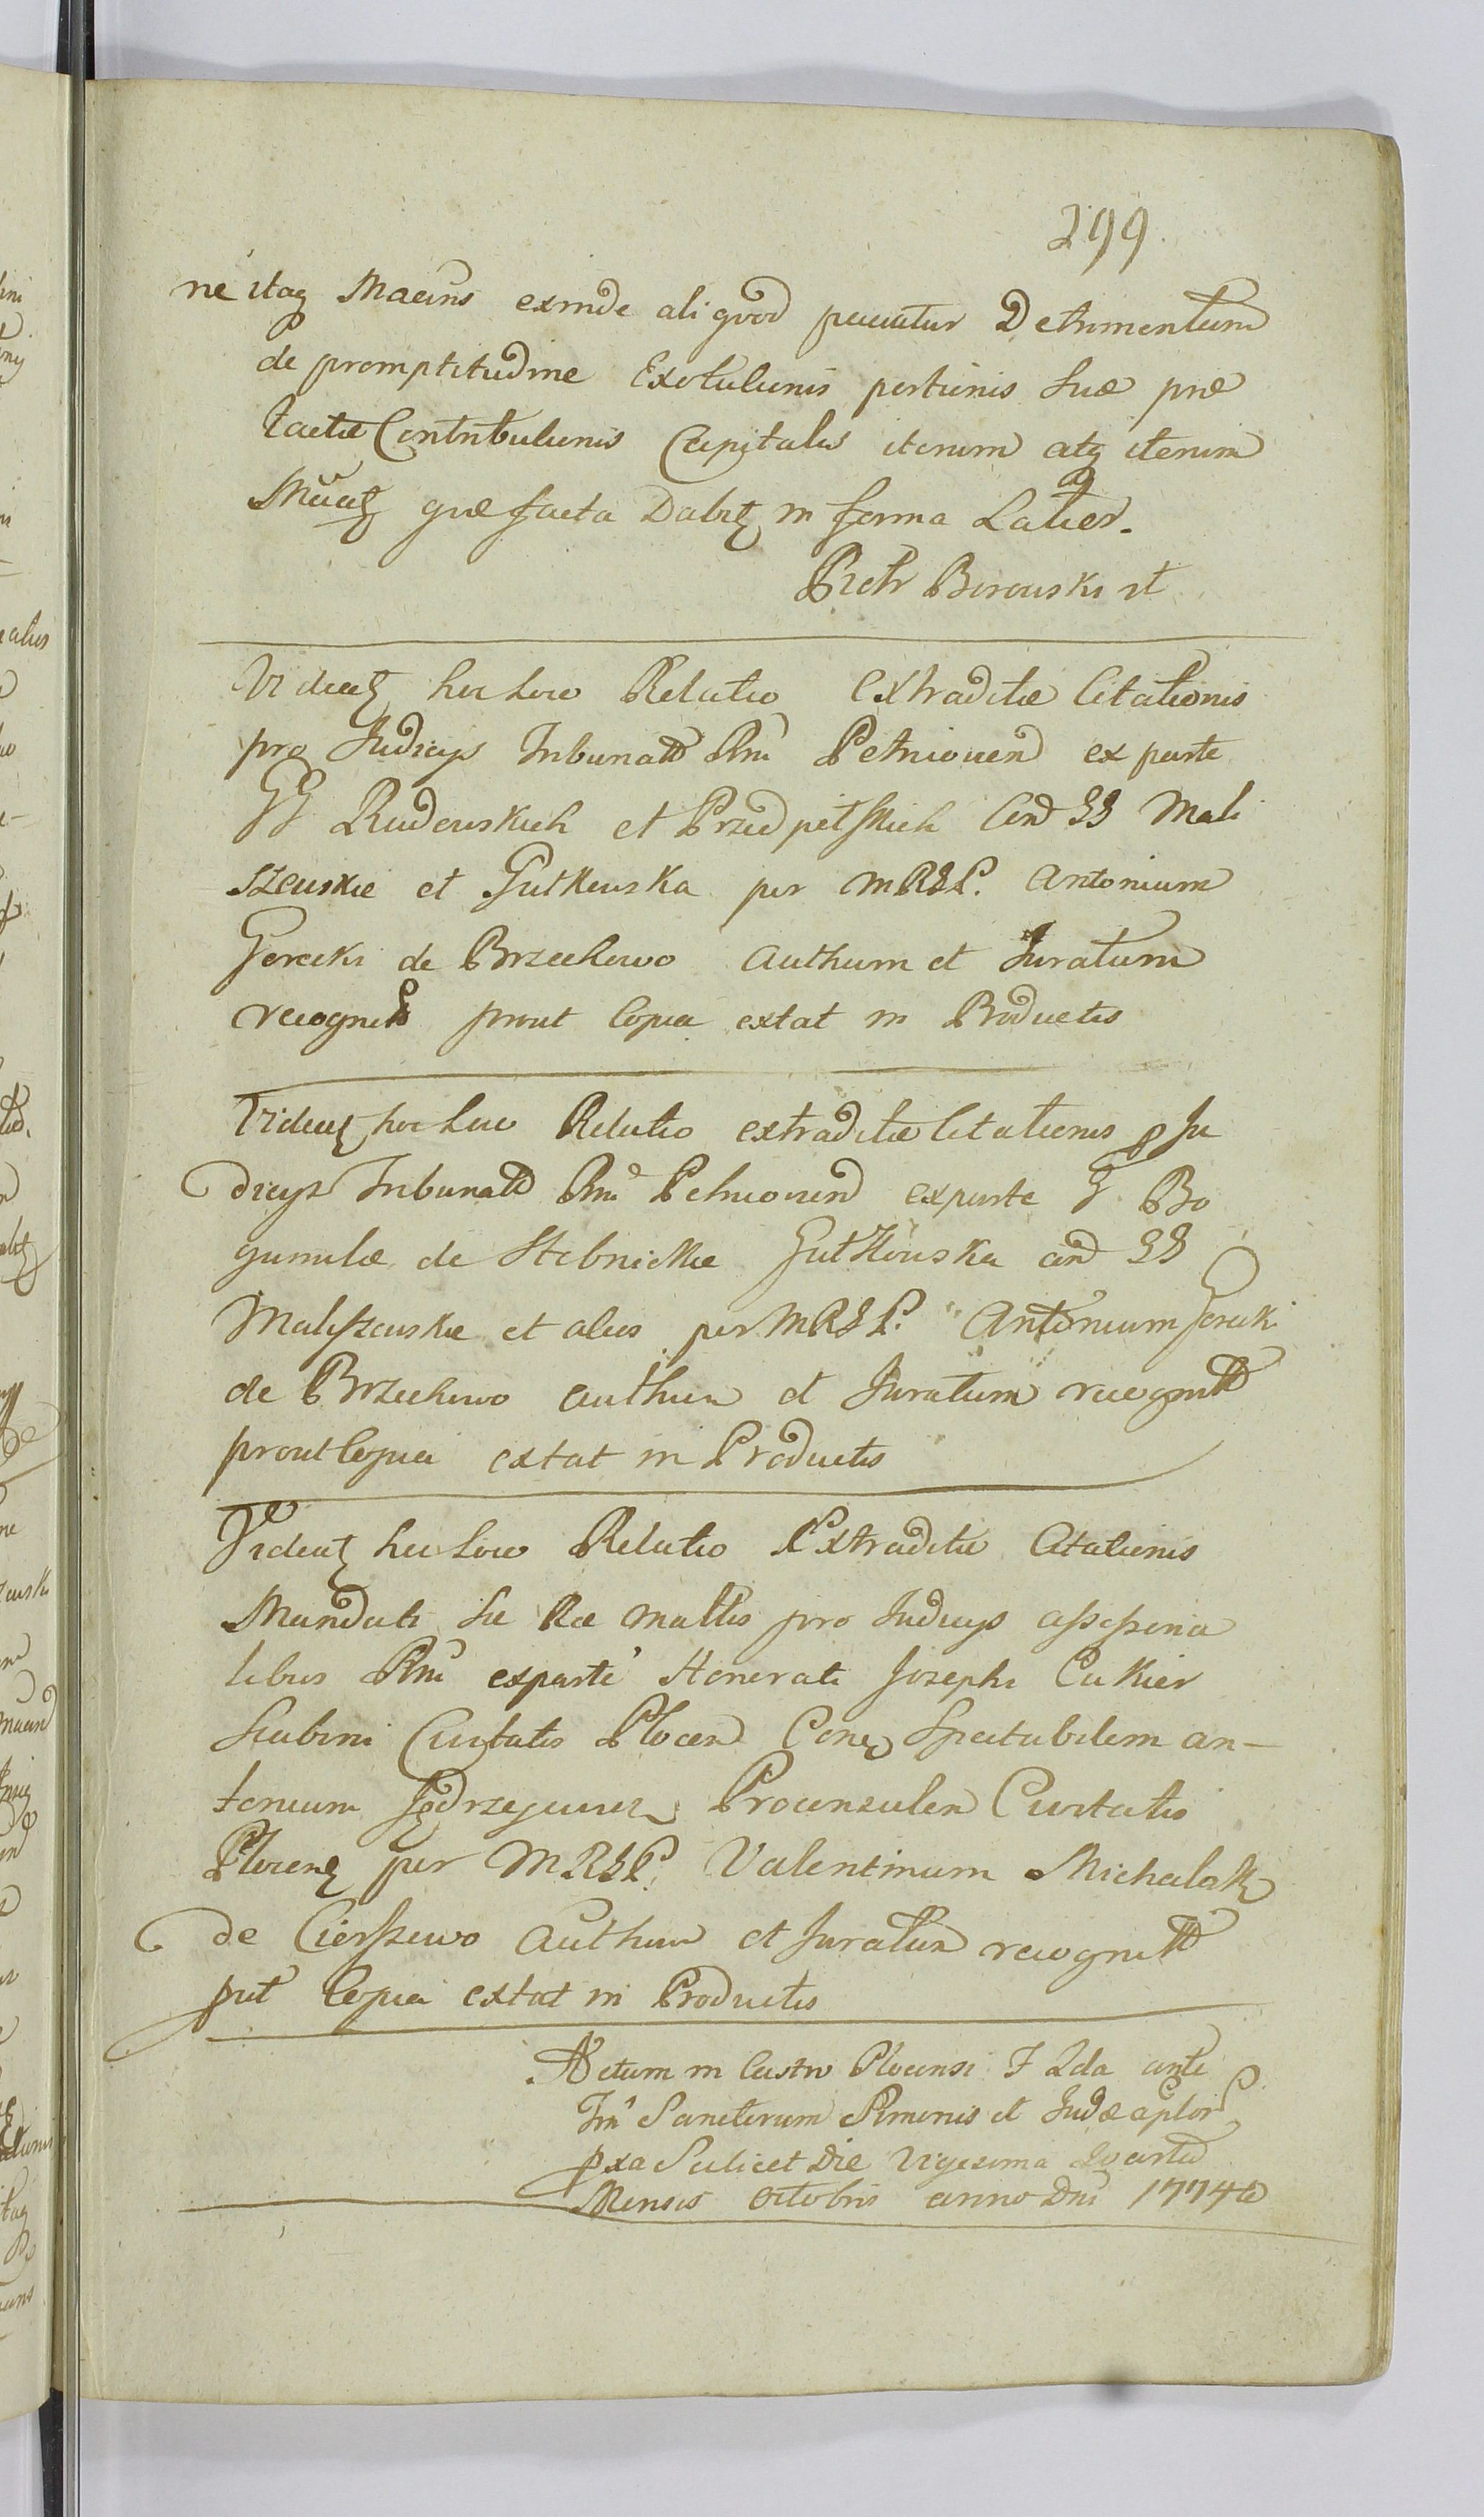 299.
ne itaq Maeius exinde aliquod paciatur Detrimentum
de promptitudine Exolutionis portionis Suæ præ
tactæ Contributionis Capitalis iterum atq iterum
quæ facta Dabit in forma Latior.
Piotr Borowski
Videatq hoc Loco Relatio Extraditæ Citationis
pro Judicijs Tribunalt Rni Petricouien ex parte
GG Rudowskich et Przedpełskich Con GG Mali
szewskie et Gutkowska per MRGP. Antonium
Gorecki de Brzechowo Authum et Juratum
recognit prout Copia extat in Productis
Videatq hoc Loco Relatio extraditæ Citationis p Ju
dicijs Tribunalt Rni Petricouien ex parte G. Bo
gumilæ de Stebnickie Gutkowska con GG
Maliszewskie et alios per MRGP. Antonium Gorecki
de Brzechowo authum et Juratum recognit
prout Copia extat in Productis
Videatq hoc Loco Relatio Extraditæ Citationis
Mandati Sæ Ræ Mattis pro Judicijs assessoria
libus Rni ex parte Honorati Josephi Cukier
Scabini Civitatis Plocen Conq Spectabilem An-
tonium Proconsulem Civitatis
Plocenq per MRGP. Valentinum Michalak
de Cierszewo Authum et Juratum recognit
put Copia extat in Productis
Actum in Castro Plocensi F 2da ante
Ftm Sanctorum Simonis et Judæ aplor
pxa Scilicet Die Vigesima Quarta
Mensis Octobris anno Dni 1774to